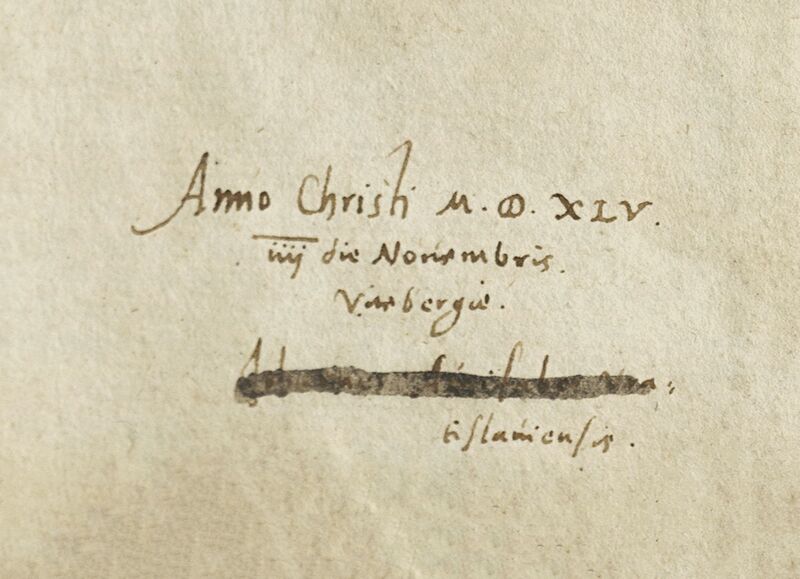 Anno Christi M. D. XLV.
iiij die Nouembris.
Vitebergæ.
Vra-
tislauiensis.